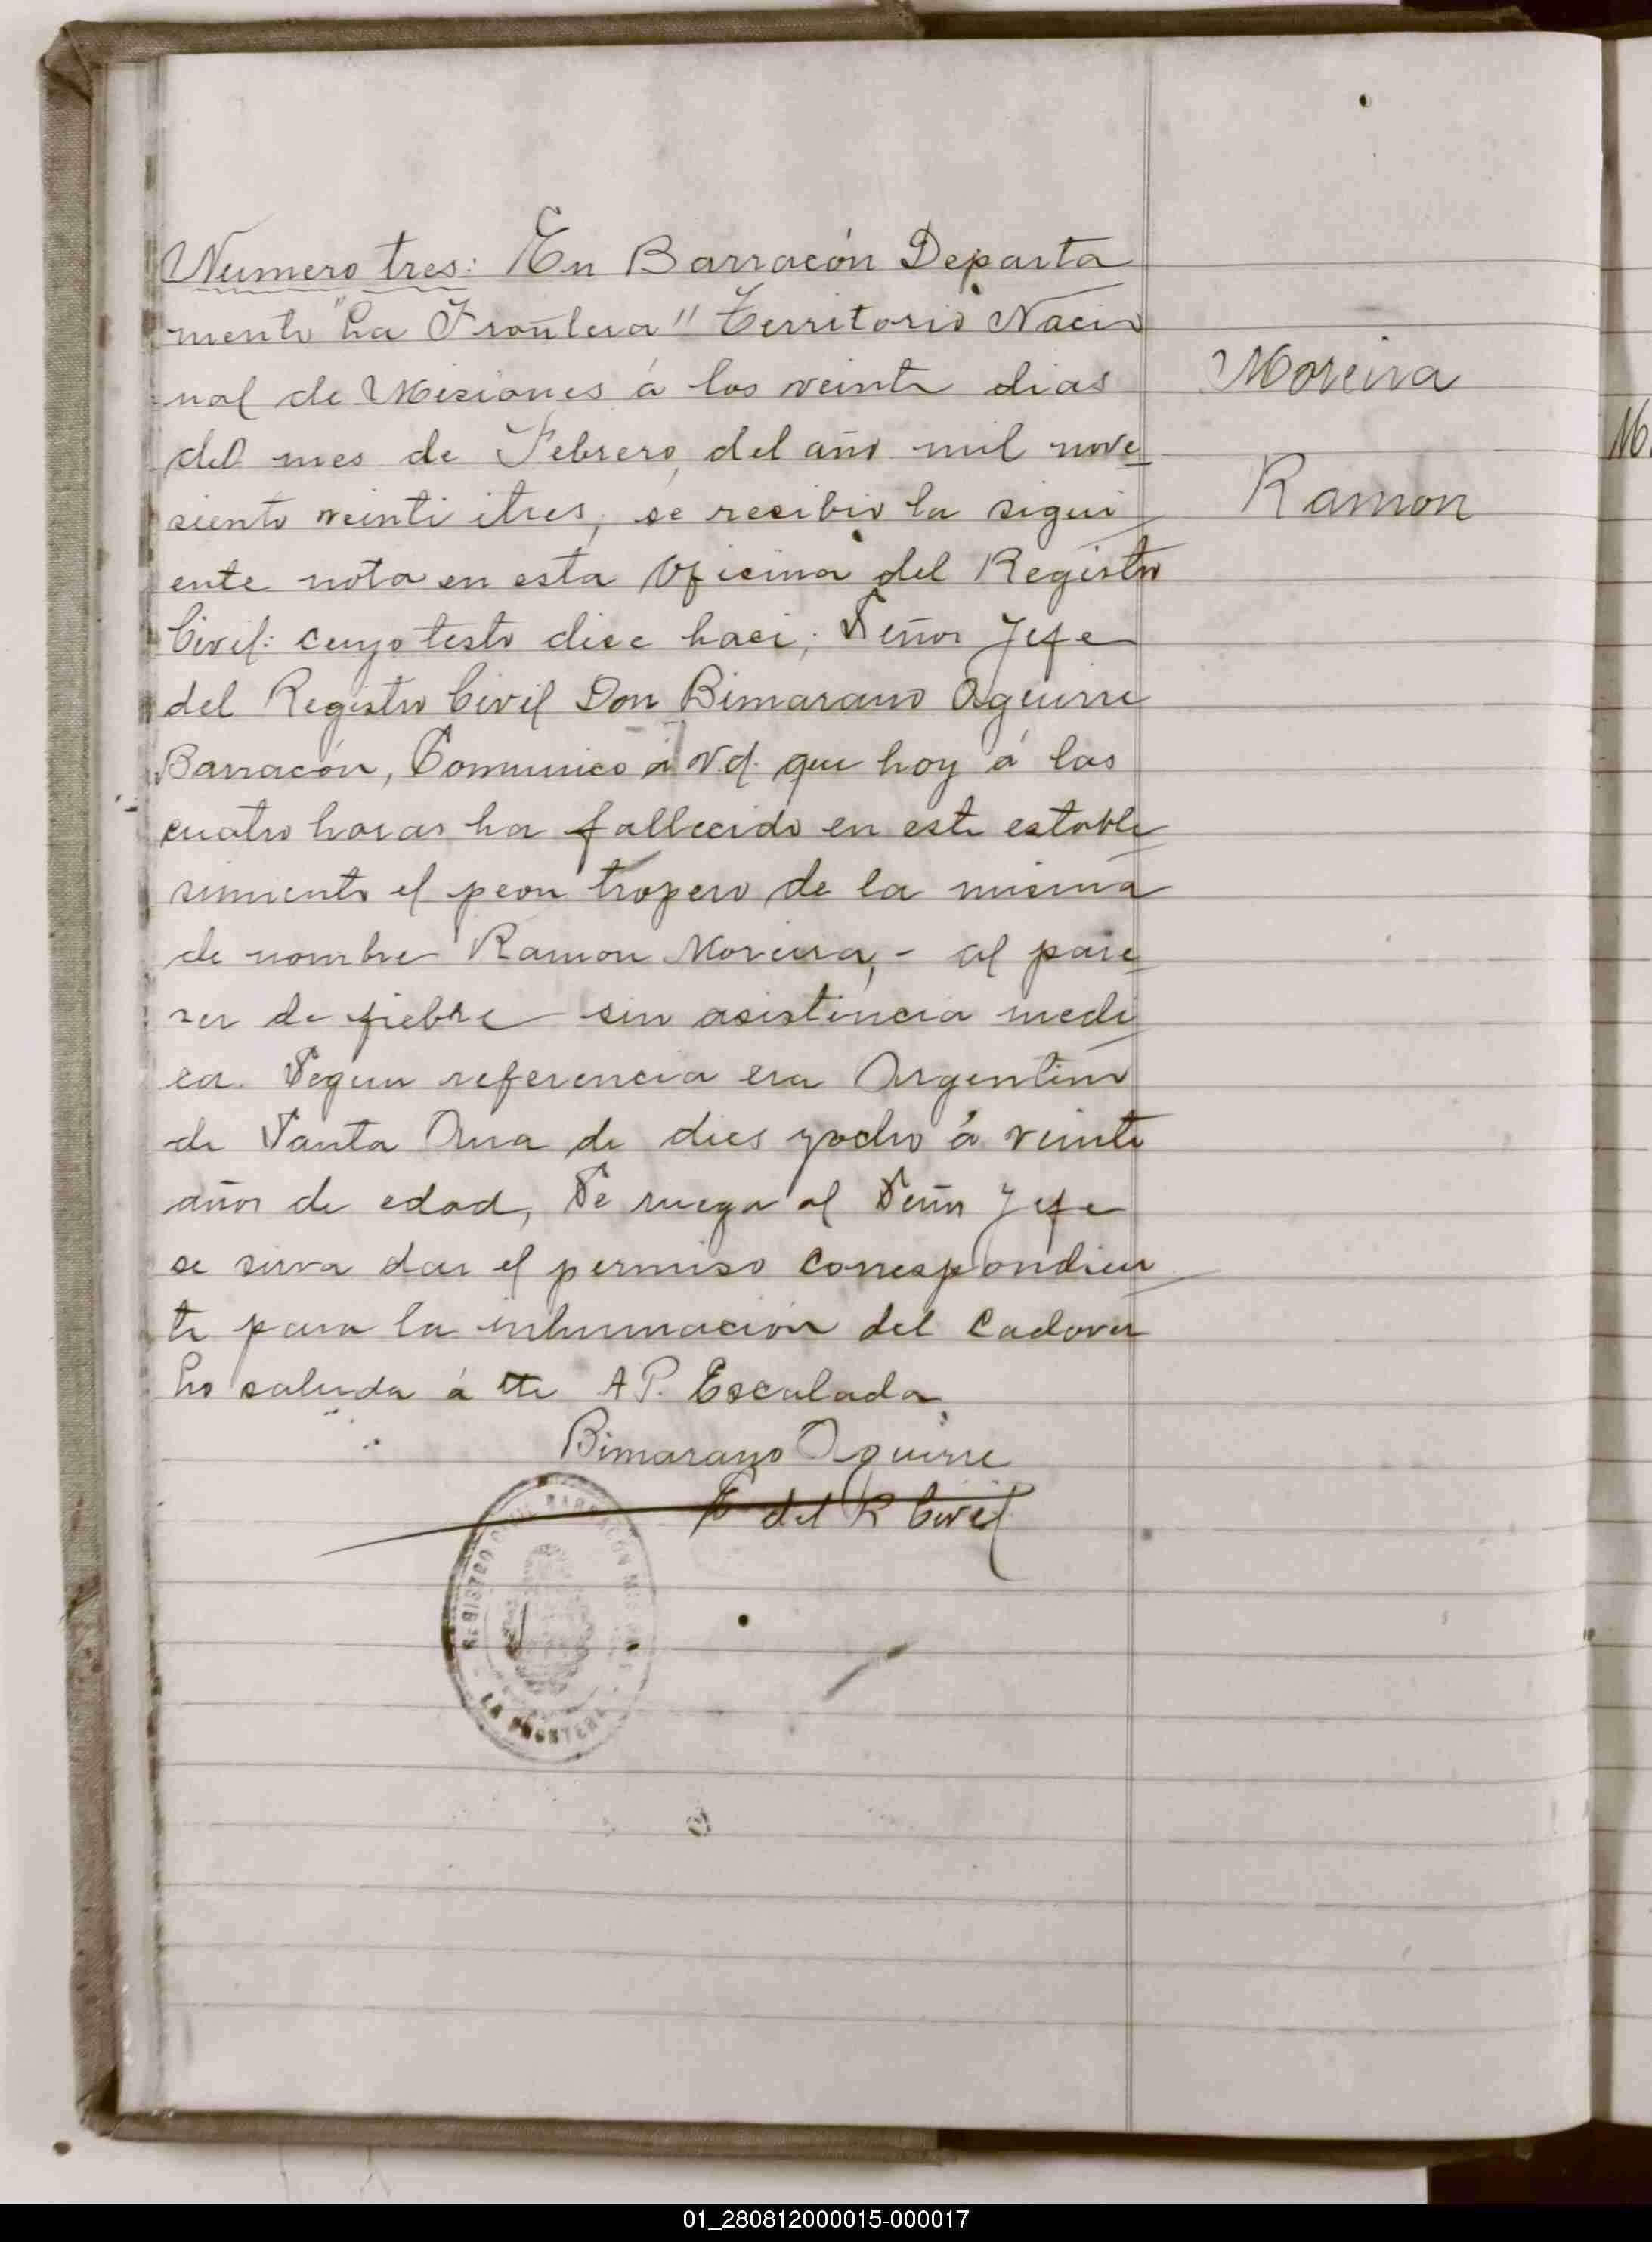 Numero tres: En Barracón Departa
mento "La Frontera" Territorio Nacio
nal de Misiones á los veinte dias
del mes de Febrero, del año mil nove
siento veinti itres, se recibio la sigui
ente nota en esta Oficina del Registro
Civil: cuyo testo dise haci; Señor Jefe
del Registro Civil Don Bimarano Aguirre
Barracón, Comunico á Vd. que hoy á las
cuatro horas ha fallecido en este estable
simiento el peon tropero de la misma
de nombre Ramon Moreira, - al pare
ser de fiebre sin asistencia medi
ca. Segun referencia era Argentino
de Santa Ana de dies yocho á veinte
años de edad, Se ruega al Señor Jefe
se sirva dar el permiso correspondien
te para la inhumación del Cadaver
Lo saluda á A P. Escalada
Bimarano Aguirre
del R Civil
Moreira
Ramon
REGISTRO CIVIL BARRACON MISIONES
LA FRONTERA
M
01_280812000015-000017